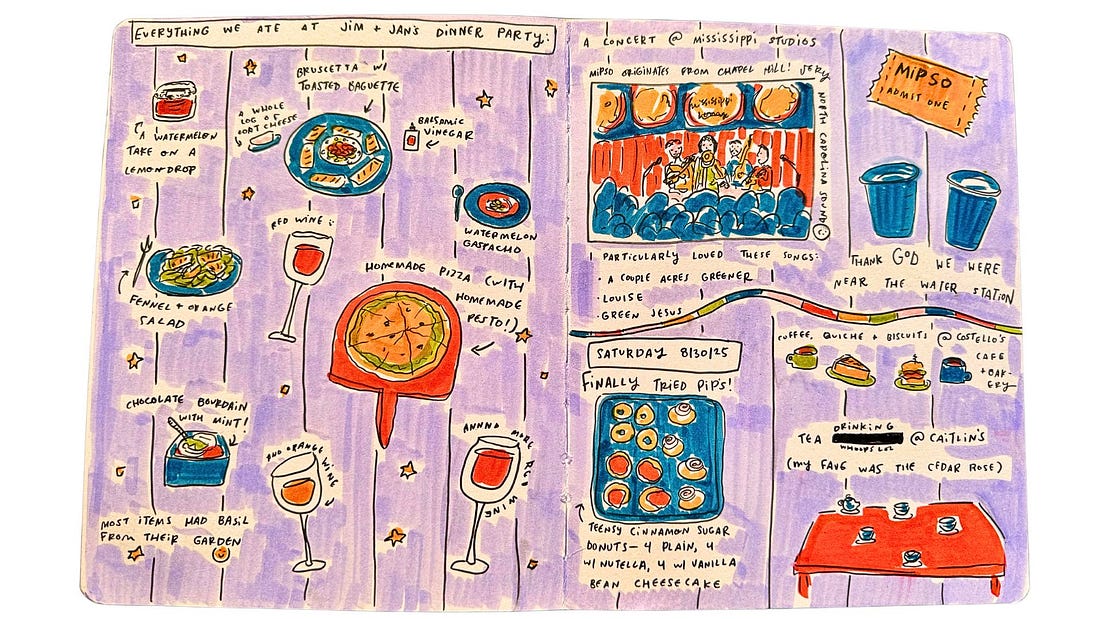 EVERYTHING WE ATE AT JIM + JAN'S DINNER PARTY:
A WATERMELON
TAKE ON A
LEMONDROP
A WHOLE
LOG OF
GOAT CHEESE
BRUSCETTA W/
TOASTED BAGUETTE
BALSAMIC
VINEGAR
WATERMELON
GASPACHO
FENNEL + ORANGE
SALAD
RED WINE
HOMEMADE PIZZA (WITH
HOMEMADE
PESTO!)
CHOCOLATE BOURDAIN
WITH MINT!
AND ORANGE WINE
ANNND MORE RED WINE
MOST ITEMS HAD BASIL
FROM THEIR GARDEN
A CONCERT @ MISSISSIPPI STUDIOS
MIPSO ORIGINATES FROM CHAPEL HILL! VERY
NORTH CAROLINA SOUND
MISSISSIPPI
MIPSO
ADMIT ONE
THANK GOD WE WERE
NEAR THE WATER STATION
I PARTICULARLY LOVED THESE SONGS:
· A COUPLE ACRES GREENER
· LOUISE
· GREEN JESUS
SATURDAY 8/30/25
FINALLY TRIED PIP'S!
TEENSY CINNAMON SUGAR
DONUTS— 4 PLAIN, 4
W/ NUTELLA, 4 W/ VANILLA
BEAN CHEESECAKE
COFFEE, QUICHE + BISCUITS @ COSTELLO'S
CAFE
+ BAK-
ERY
TEA DRINKING @ CAITLIN'S
WHOOPS LOL
(MY FAVE WAS THE CEDAR ROSE)